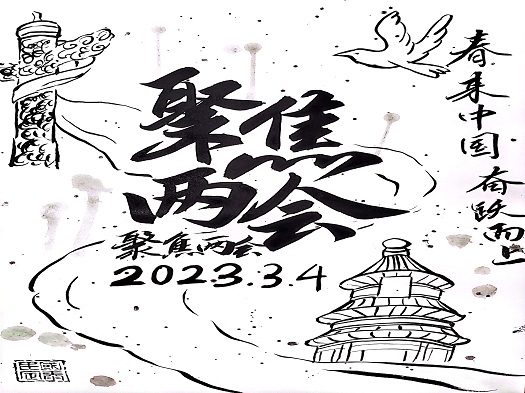 聚焦
两会
聚焦两会
2023.3.4
春来中国 奋跃而上